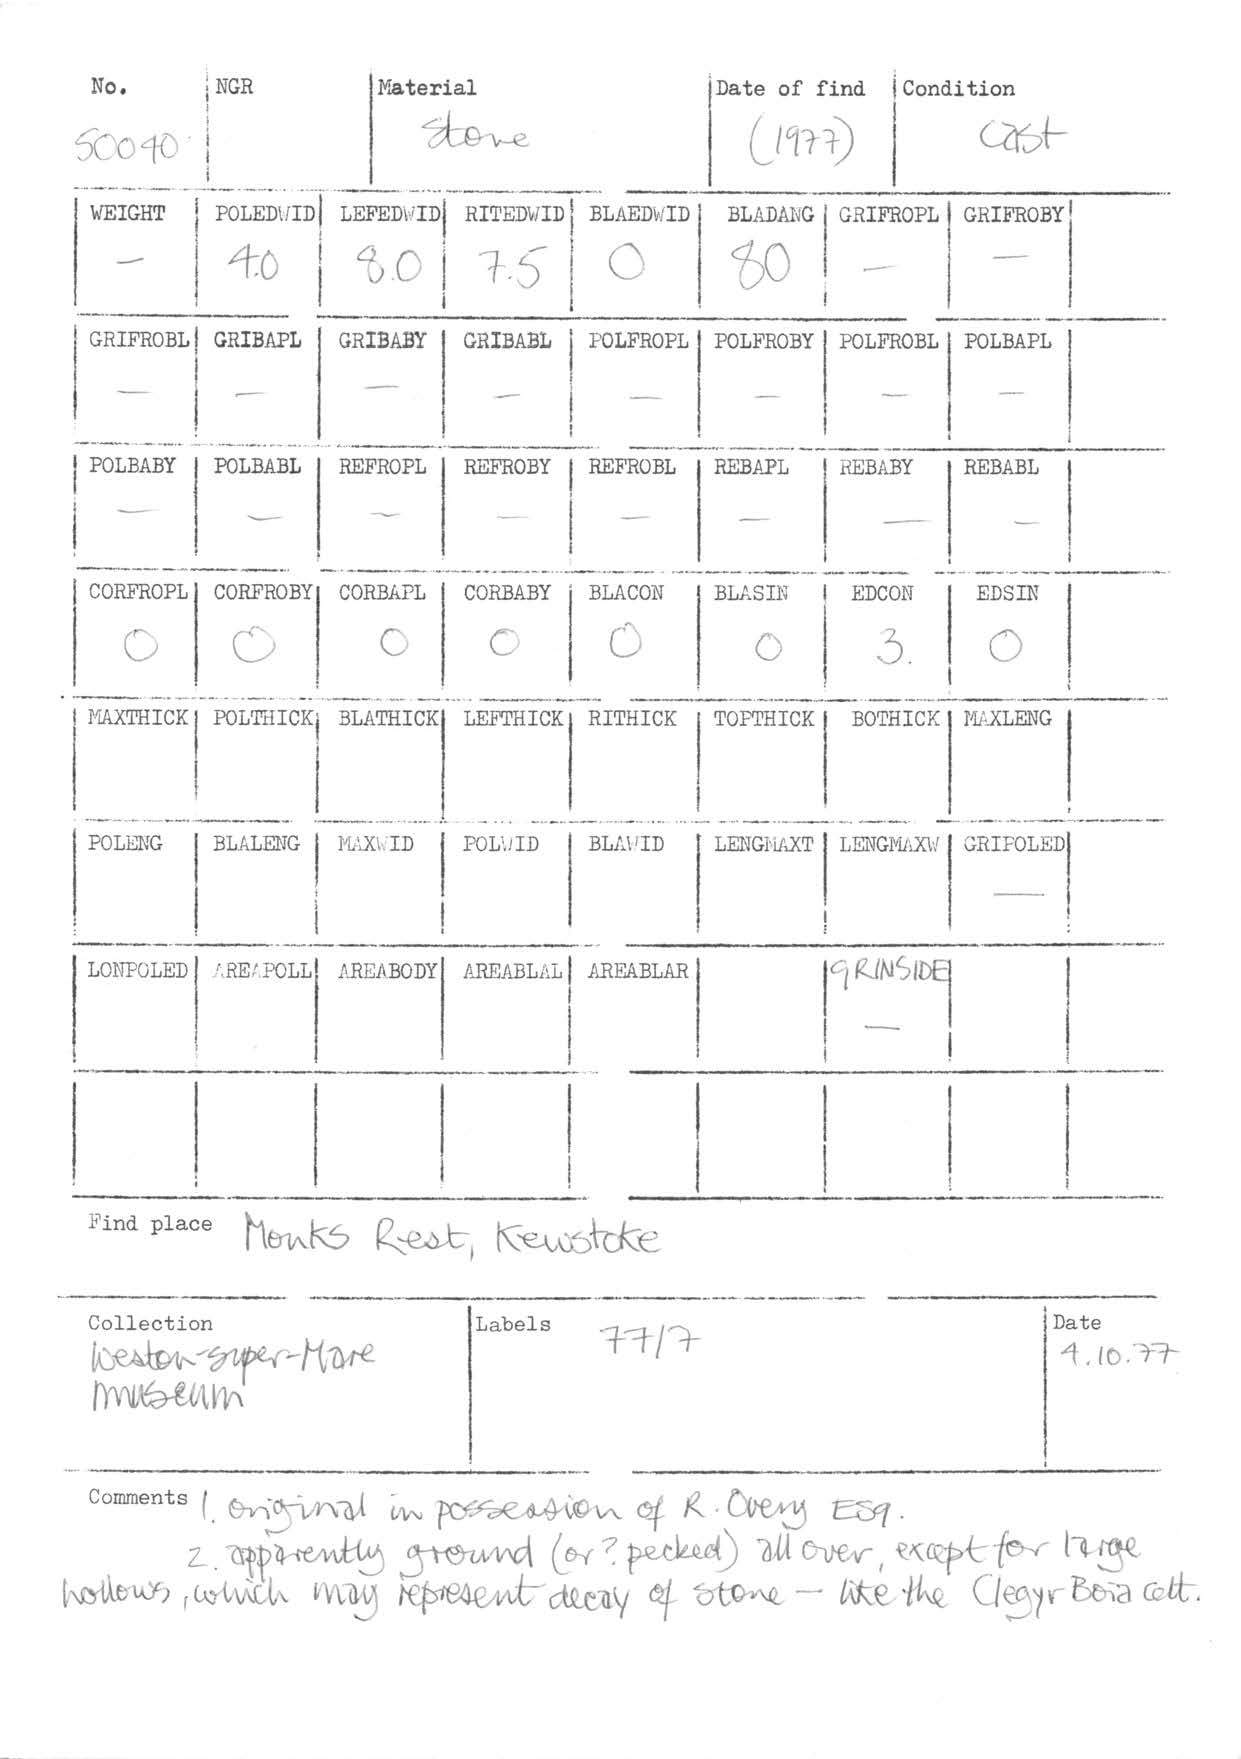 No. NGR Material Date of find Condition
50040 Stone (1977) Cast
WEIGHT POLEDWID LEFEDWID RITEDWID BLAEDWID BLADANG GRIFROPL GRIFROBY
— 4.0 8.0 7.5 0 80 — —
GRIFROBL GRIBAPL GRIBABY GRIBABL POLFROPL POLFROBY POLFROBL POLBAPL
— — — — — — — —
POLBABY POLBABL REFROPL REFROBY REFROBL REBAPL REBABY REBABL
— — — — — — — —
CORFROPL CORFROBY CORBAPL CORBABY BLACON BLASIN EDCON EDSIN
0 0 0 0 0 0 3. 0
MAXTHICK POLTHICK BLATHICK LEFTHICK RITHICK TOPTHICK BOTHICK MAXLENG
POLENG BLALENG MAXWID POLWID BLAWID LENGMAXT LENGMAXW GRIPOLED
—
LONPOLED AREAPOLL AREABODY AREABLAL AREABLAR GRINSIDE
—
Find place Monks Rest, Kewstoke
Collection Labels 77/7 Date
Weston-super-Mare 4.10.77
museum
Comments 1. original in possession of R. Overy ESq.
2. apparently ground (or ? pecked) all over, except for large
hollows, which may represent decay of stone — like the Clegyr Boia celt.